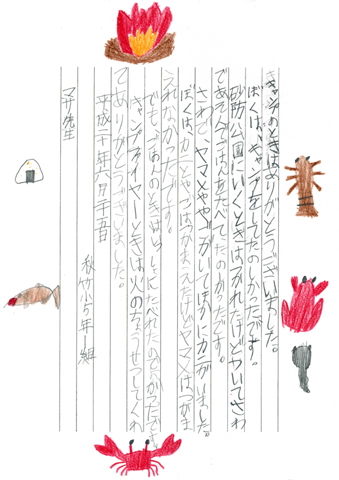 キャンプのときはありがとうございました。
ぼくは、キャンプをしてたのしかったです。
砂防公園にいくときはつかれたけどついてさわ
であそんでごはんをたべてたのしかったです。
さわで、ヤマメややごがいてほかにカニがいました。
ぼくは、カニとやごはつかまえたけどヤマメはつかま
えれなかったです。
でも、ごはんのときはいっしょにたべれたのでよかったです
キャンプファイヤーときは火のちょうせつしてくれ
てありがとうございました。
平成二十年六月二十五日
秋竹小5年1組
マサ先生